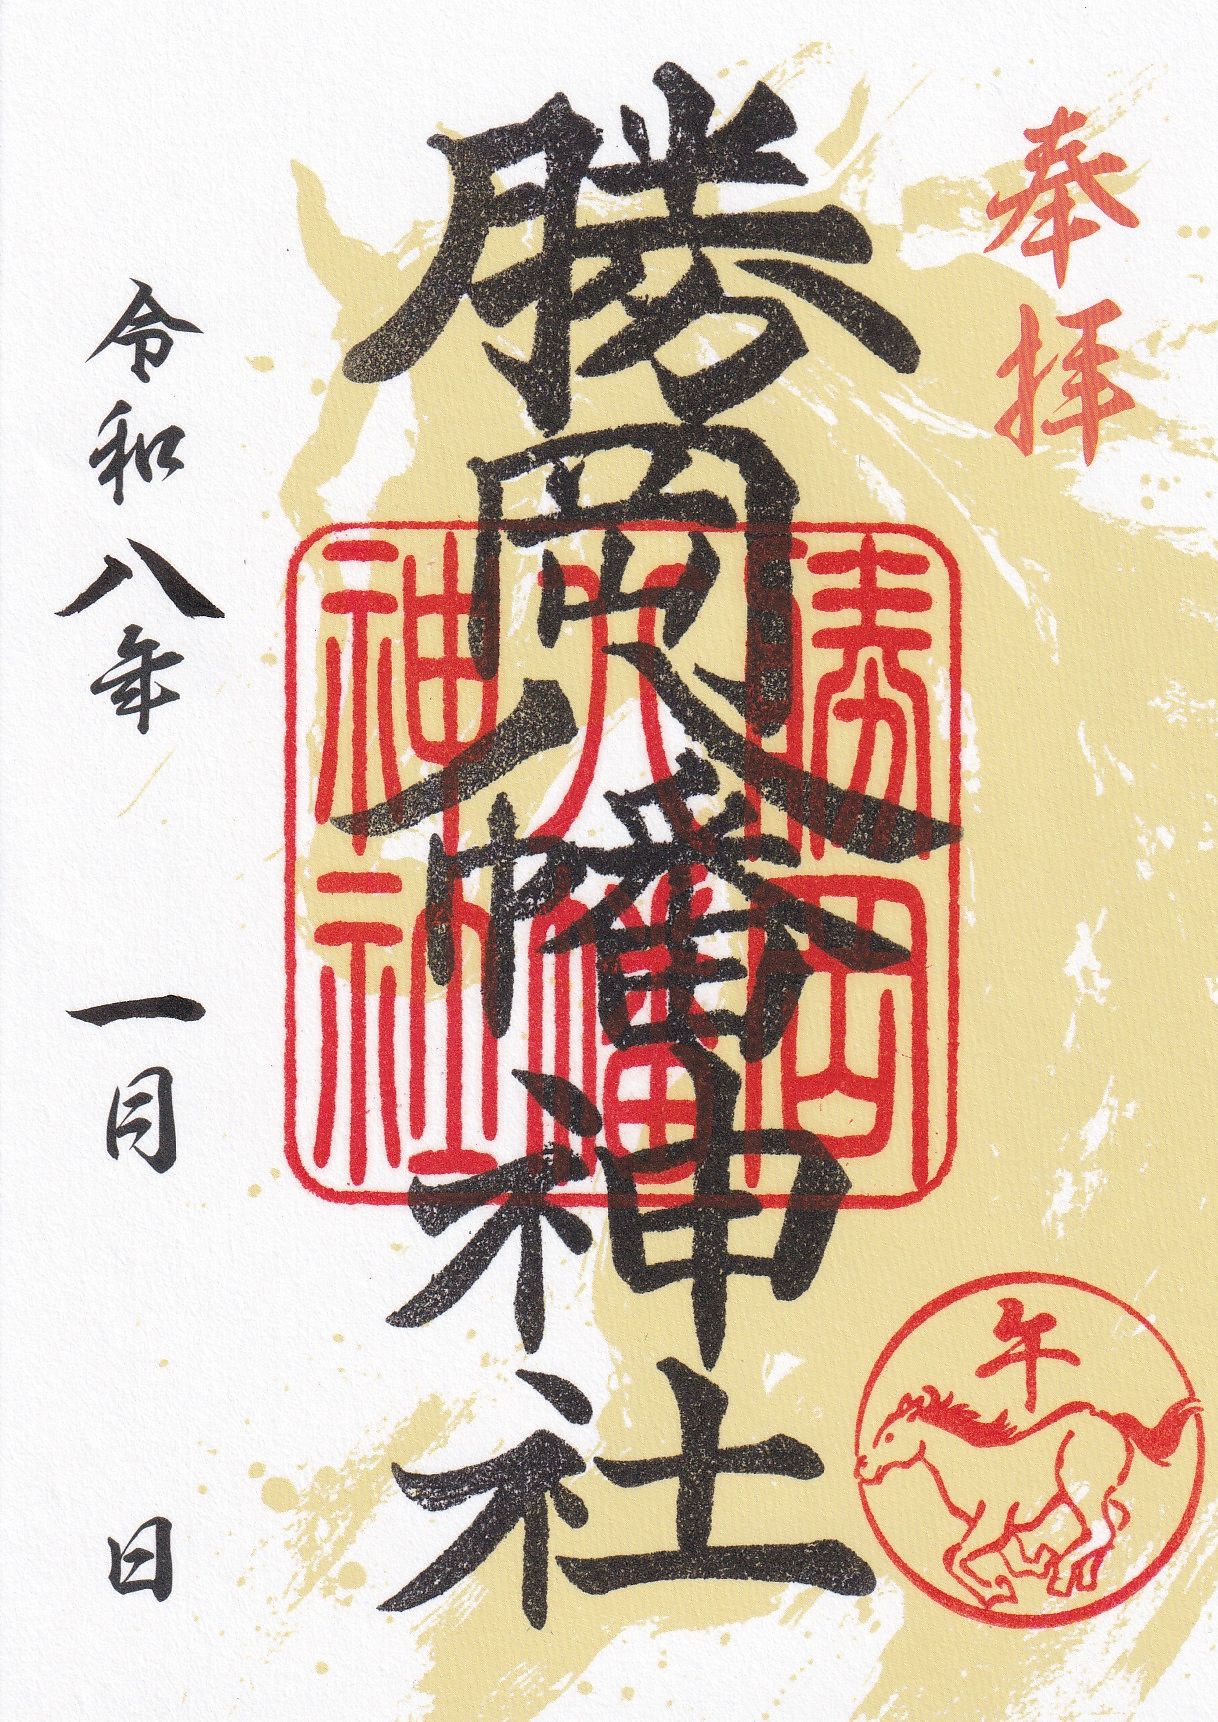 奉拝
勝岡八幡神社
勝岡
八幡
神社
午
令和八年 一月 日